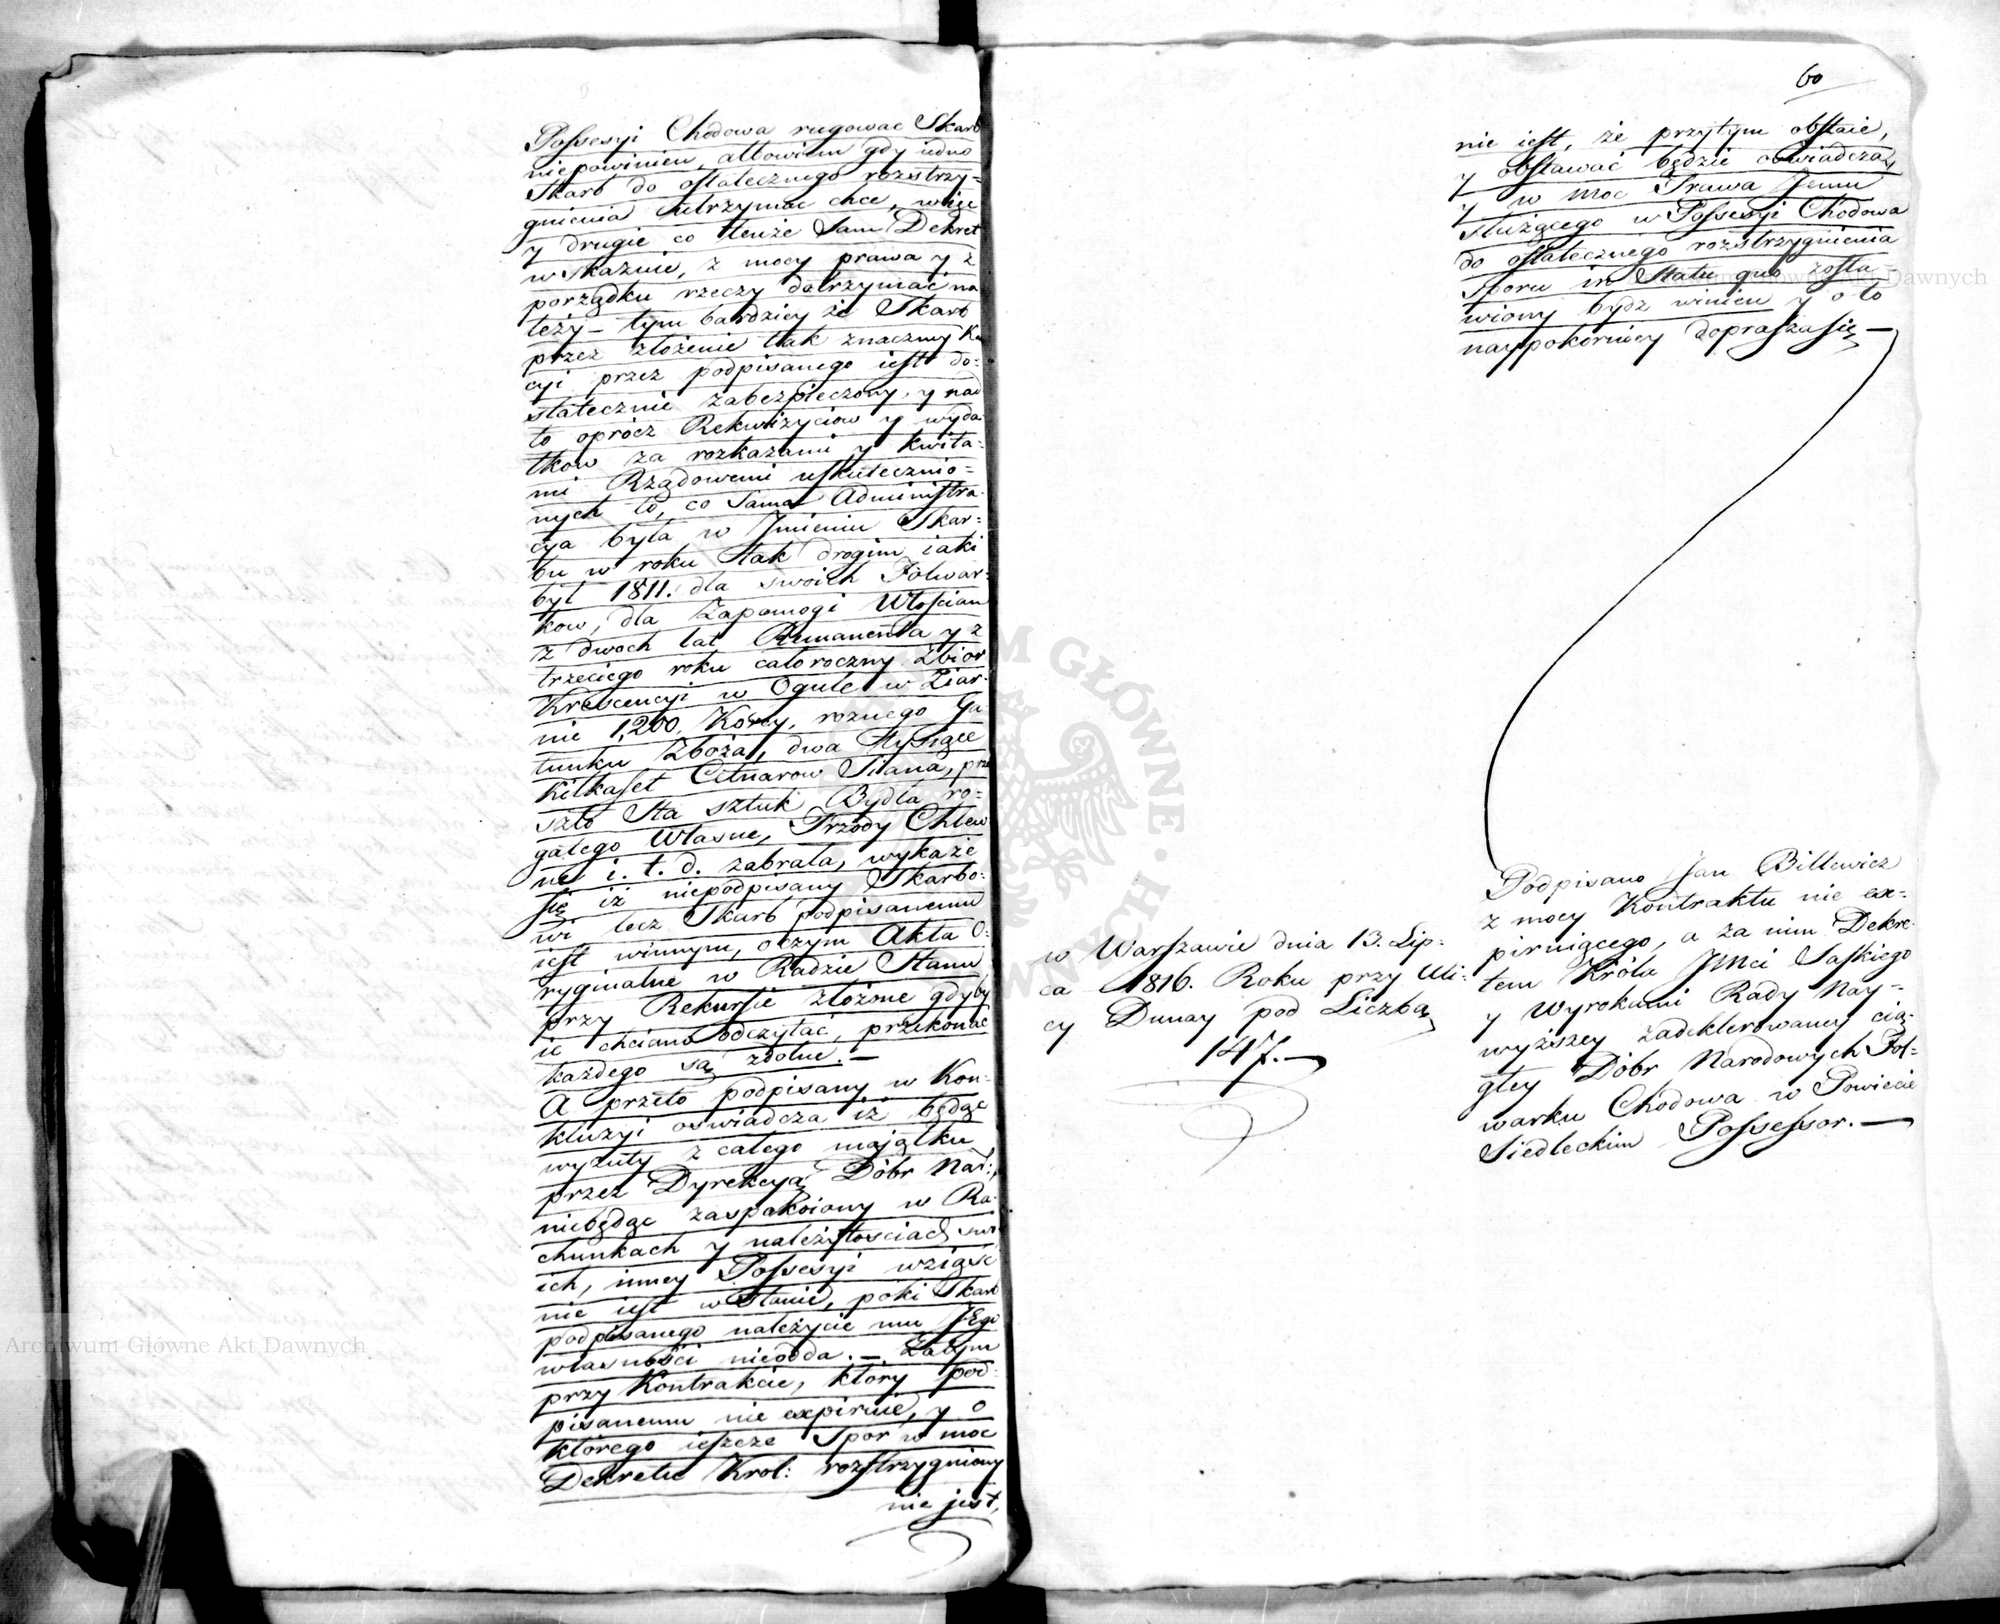 Possesyi Chodowa rugować Skarb
niepowinien, albowiem gdy iedno
Skarb do ostatecznego rozstrzy=
gnienia utrzymać chce, więc
y drugie co tenże Sam Dekret
wskazuie, z mocy prawa y z
porządku rzeczy dotrzymać na
leży – tym bardziey że Skarb
przez złożenie tak znaczney Kau
cyi przez podpisanego iest do=
statecznie zabezpieczony, y nad
to oprócz Rekwizyciow y wyda
tkow za rozkazami y kwita=
mi Rządowemi uskutecznio=
nych to, co Sama Administra=
cya była w Jmieniu Skar=
bu w roku tak drogim iaki
był 1811. dla swoich Folwar=
kow, dla Zapomogi Włościan
z dwoch lat Remanenta y z
trzeciego roku całoroczny Zbior
Krescencyi w Ogule w Ziar=
nie 1,200. Korcy, roznego Ga
tunku Zboża, dwa tysiące
kilkaset Cetnarow Siana, prze
szło sta sztuk Bydła ro=
gatego Własne, Trzody Chlew
ne i. t. d. zabrała, wykaże
się iż niepodpisany Skarbo=
wi lecz Skarb podpisanemu
iest winnym, oczym Akta O=
ryginalne w Radzie Stanu
przy Rekursie złożone gdyby
ie chciano odczytać, przekonać
każdego są zdolne. –
A przeto podpisany w Kon=
kluzyi oświadcza iż będąc
wyzuty z całego maiątku
przez Dyrekcyą Dóbr Nar:
niebędąc zaspokoiony w Ra=
chunkach y należytościach swo
ich, inney Possesyi wziąść
nie iest w stanie, poki Skarb
podpisanego należycie mu Jego
własności nieodda. – Zatym
przy Kontrakcie, który pod=
pisanemu nie expiruie, y o
którego ieszcze Spor w moc
Dekretu Krol: rozstrzygniony
nie jest,
60
nie iest, że przytym obstaie,
y obstawać będzie oświadcza,
y w moc Prawa Jemu
służącego w Possesyi Chodowa
do ostatecznego rozstrzygnienia
Sporu in Statu quo zosta
wiony bydz winien y o to
naypokorniey dopraszasię –
w Warszawie dnia 13. Lip=
ca 1816. Roku przy Uli=
cy Dunay pod Liczbą
147. –
Podpisano Jan Billewicz
z mocy Kontraktu nie ex=
piruiącego, a za nim Dekre=
tem Króla JMci Saskiego
y Wyrokami Rady Nay=
wyższey zadeklerowaney cią=
głey Dóbr Narodowych Fol=
warku Chodowa w Powiecie
Siedleckim Possessor. –
Archiwum Główne Akt Dawnych